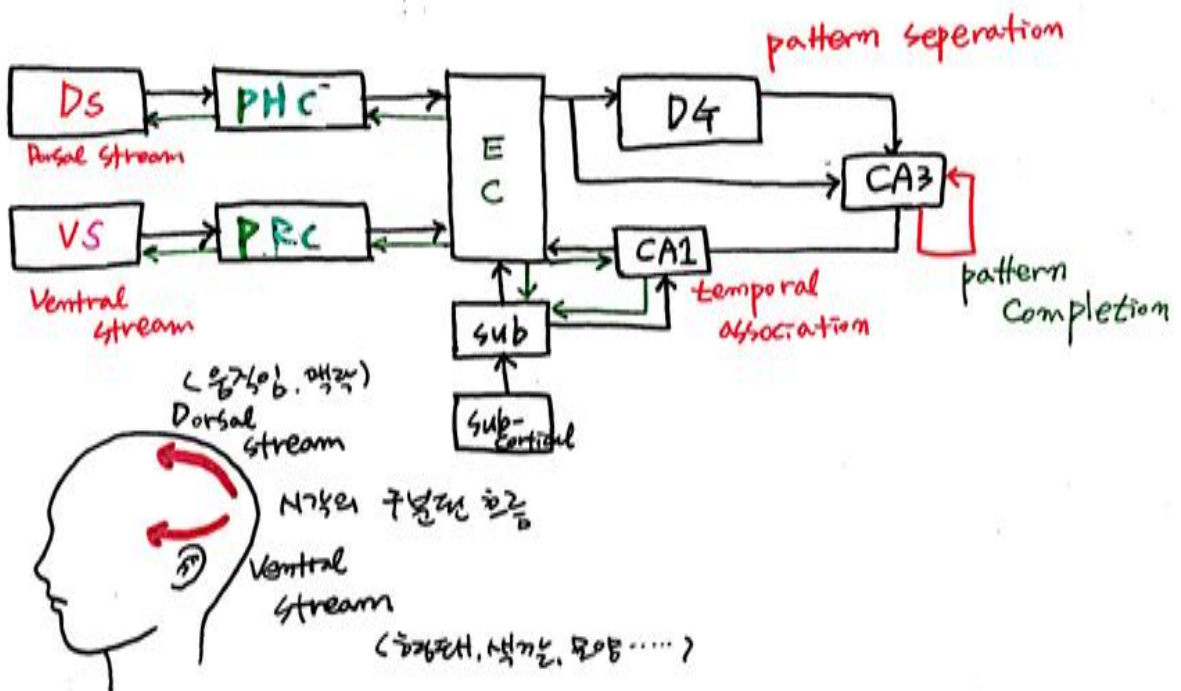 pattern seperation
DS
PHC
E
C
DG
Dorsal stream
CA3
VS
PRC
CA1
Ventral
stream
temporal
association
pattern
completion
sub
sub-
cortical
(움직임, 맥락)
Dorsal
stream
시각의 구분된 흐름
Ventral
stream
(형태, 색깔, 모양‥‥‥)